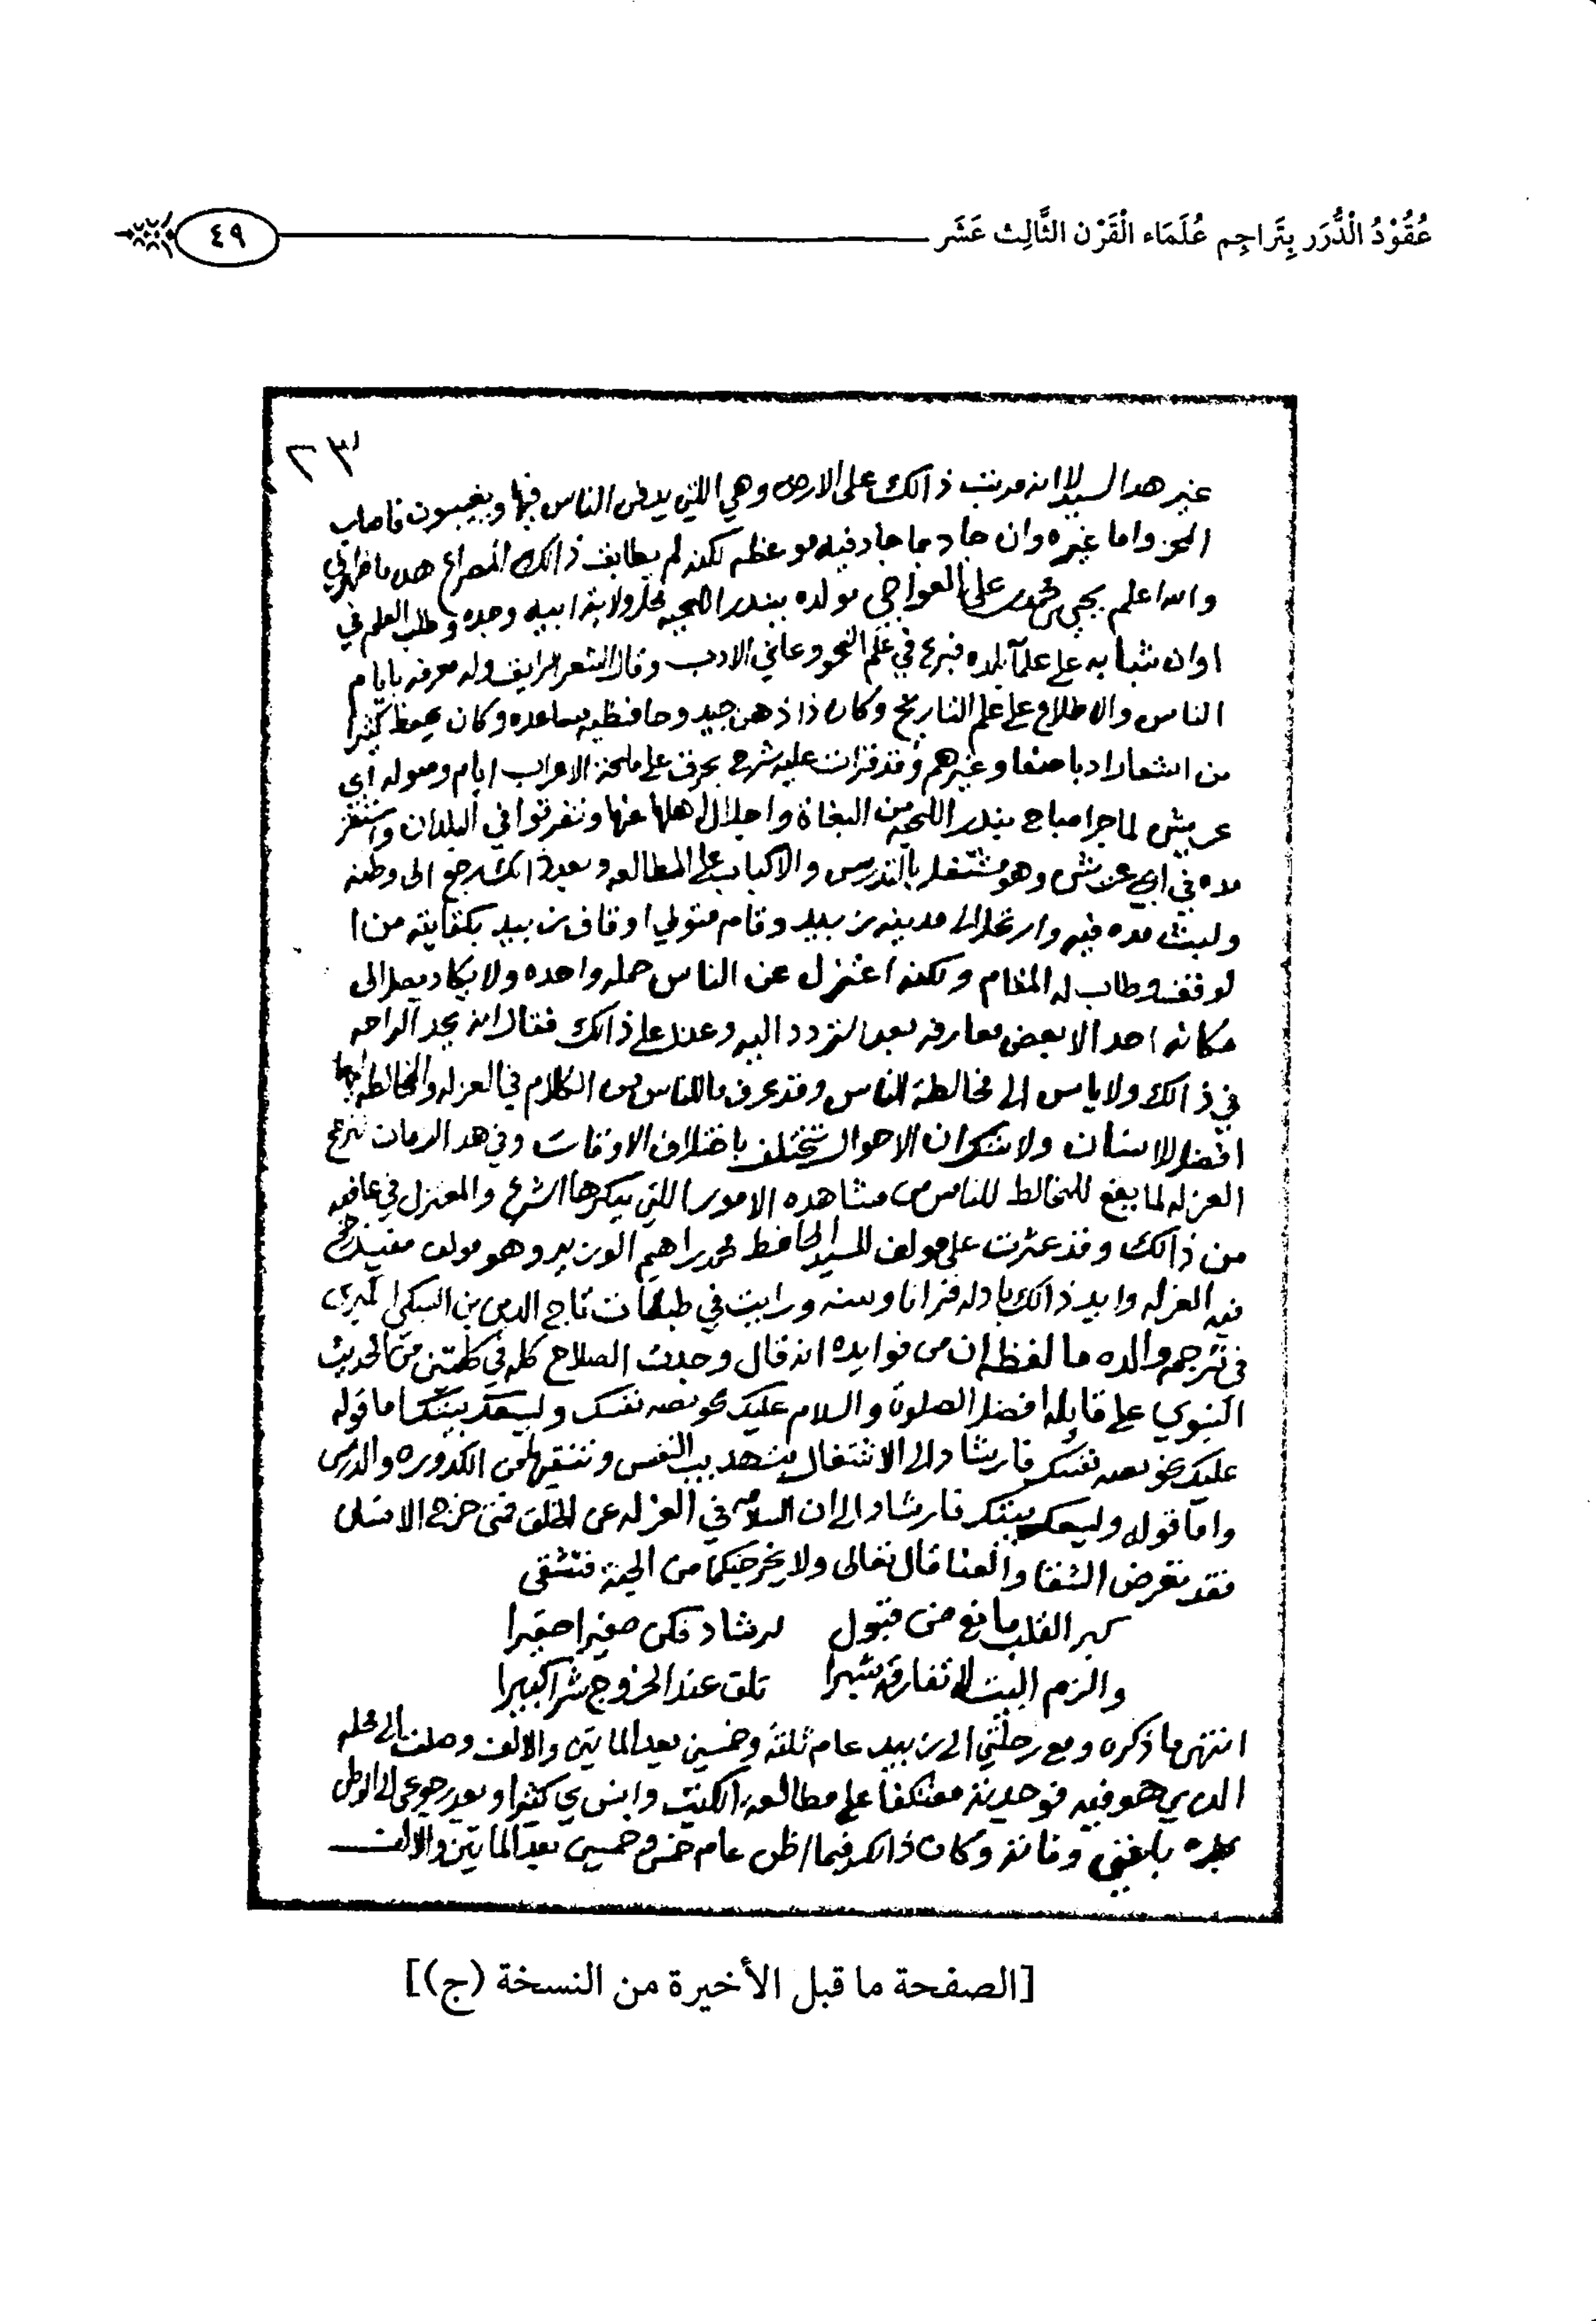 عُقُوْدُ الْدُّرَر بِتَراجِم عُلَمَاء الْقَرْن الثَّالِث عَشَر
٤٩
٢٣
غير هدا السيد لا انه مرتب ذالك على الارض وهي اللتي يدفن الناس فيها ويغيبون فاصاب
المحز واما غيره وان جاد بما جاد فيه موعظه لكنه لم يطابق ذالك المصراع هدا ما ظهر لي
والله اعلم يحيى بن محمد بن علي العواجي مولده ببندر اللحيه محل ولاية ابيه وجده وطلب العلم في
اوان شبابه على علمآ بلده فبرع في علم النحو وعانى الادب وقال الشعر الرايق وله معرفه بايام
الناس والاطلاع على علم التاريخ وكان ذا ذهن جيد وحافظه مساعده وكان يحفظ كثيرا
من اشعار ادبا صنعا وغيرهم وقد قرات عليه شرح بحرق على ملحة الاعراب ايام وصوله ابي
عريش لما جرا مباح بندر اللحيه من البغاة واجلال اهلها عنها وتفرقوا في البلدان واستقر
مده في ابي عريش وهو مشتغل بالتدريس والاكباب على المطالعه وبعد ذالك رجع الى وطنه
ولبث مده فيه وارتحل الى مدينه زبيد وقام متولي اوقاف زبيد بكفايته من ا
لوقف وطاب له المقام ولكنه اعتزل عن الناس جمله واحده ولا يكاد يصل الى
مكانه احد الا بعض معارفه بعد التردد اليه وعذل على ذالك فقال انه يجد الراحه
في ذالك ولا ياس الى مخالطة الناس وقد عرف ما للناس من الكلام في العزله والمخالطه ايهما
افضل للانسان ولا شك ان الاحوال تختلف باختلاف الاوقات وفي هدا الزمان ترجح
العزله لما يقع للمخالط للناس من مشاهده الامور اللتي ينكرها الشرع والمعتزل في عافيه
من ذالك وقد عثرت على مولف للسيد الحافظ محمد براهيم الوزير وهو مولف مفيد رجح
فيه العزله وايد ذالك بادله قرانا وسنه ورايت في طبقات تاج الدين بن السبكي الكبرى
في ترجمه والده ما لفظه ان من فوايده انه قال وجدت الصلاح كله في كلمتين من الحديث
النبوي على قايله افضل الصلوة والسلام عليك بخويصه نفسك وليسعك بيتك اما قوله
عليك بخويصه نفسك فارشاد الى الاشتغال بتهديب النفس وتنقيتها من الكدوره والدرس
وامآ قوله وليسعك بيتك فارشاد الى ان السلامه في العزله عن الخلق فمتى خرج الانسان
فقد تعرض الشقا والعنا قال تعالى ولا يخرجنكما من الجنة فتشقى
كبر القلب مانع من قبول لرشاد فكن صغيرا حقيرا
والزم البيت لا تفارقه شبرا تلق عند الخروج شرا كبيرا
انتهى ما ذكره ومع رحلتي الى زبيد عام ثلثة وخمسين بعد المايتين والالف وصلت الى محله
الدي هو فيه فوجدته معتكفا على مطالعه الكتب وانس بي كثيرا وبعد رجوعي الى الوطن
بلغني وفاته وكان ذالك فيما اظن عام خمس وخمسين بعد المايتين والالف
[الصفحة ما قبل الأخيرة من النسخة (ج)]